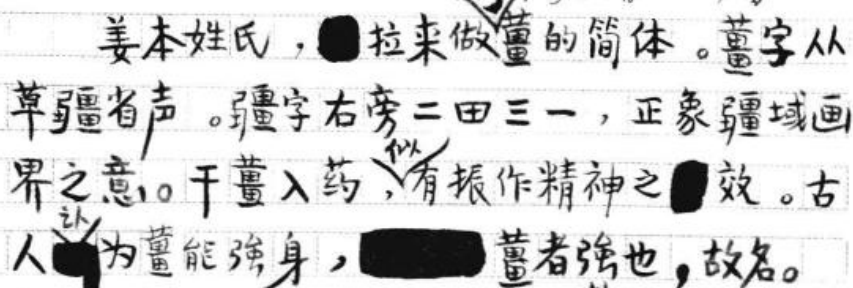 姜本姓氏，拉来做薑的简体。薑字从
草疆省声。疆字右旁二田三一，正象疆域画
界之意。干薑入药，似有振作精神之效。古
人认为薑能強身，薑者強也，故名。